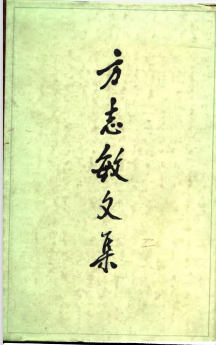 方志敏文集